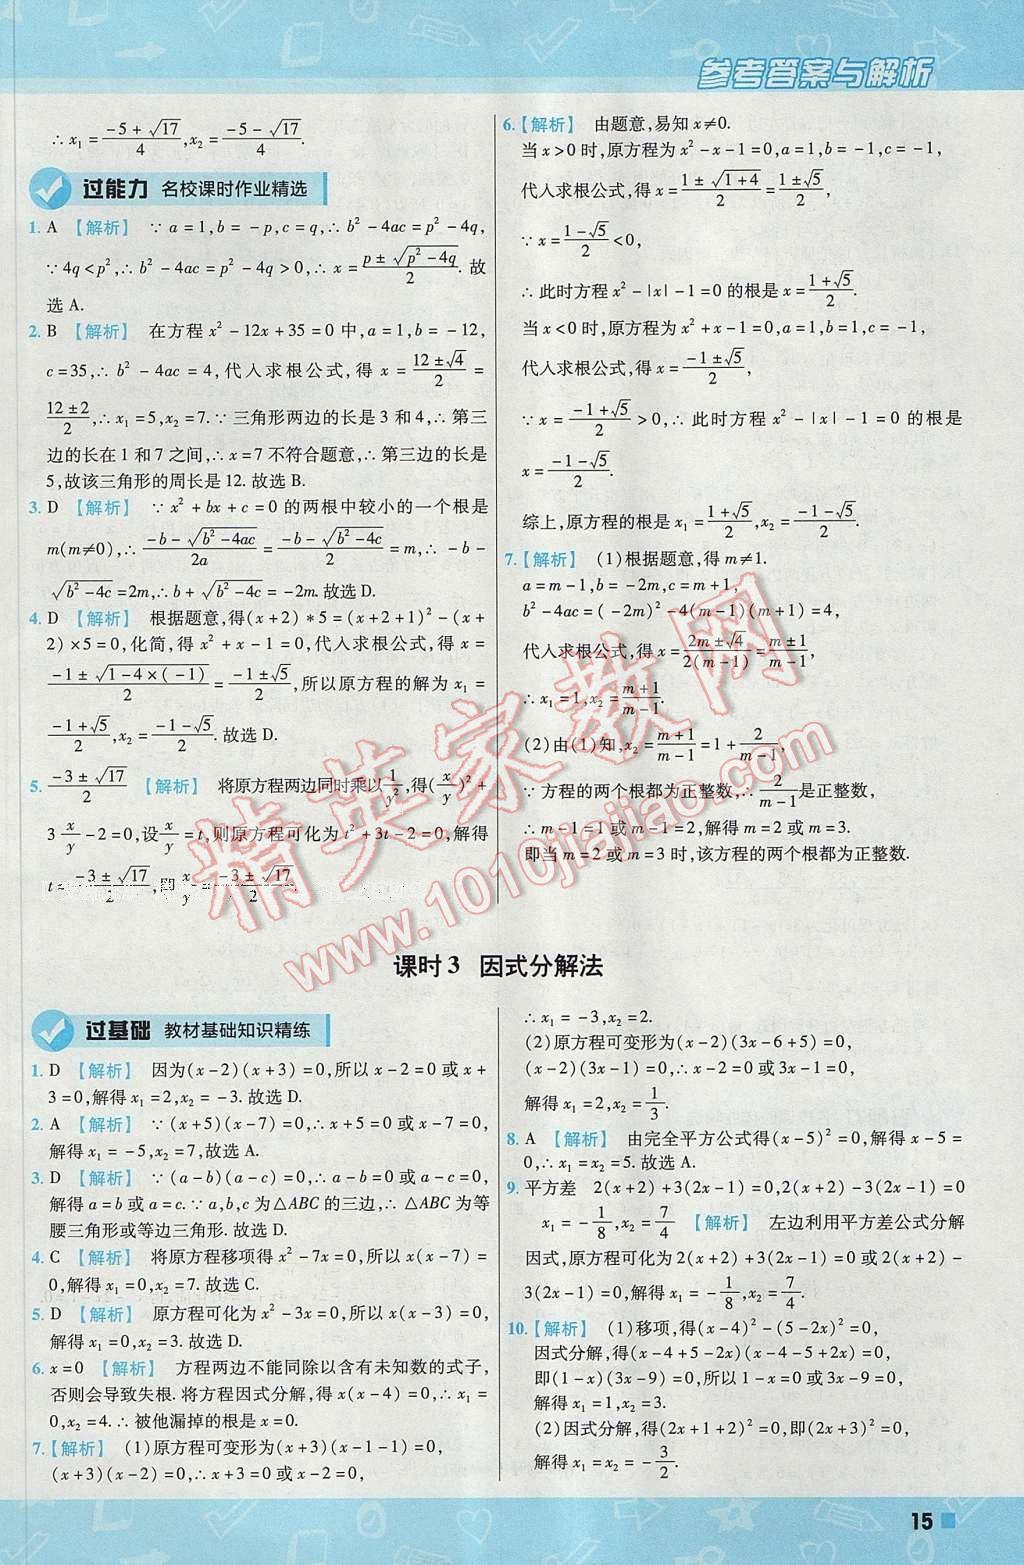 参考答案与解析
∴ x₁ = (-5 + √17)/4, x₂ = (-5 - √17)/4.
过能力 名校课时作业精选
1. A 【解析】 ∵ a = 1, b = -p, c = q, ∴ b² - 4ac = p² - 4q,
∵ 4q < p², ∴ b² - 4ac = p² - 4q > 0, ∴ x = (p ± √(p² - 4q))/2. 故
选 A.
2. B 【解析】 在方程 x² - 12x + 35 = 0 中, a = 1, b = -12,
c = 35, ∴ b² - 4ac = 4, 代入求根公式, 得 x = (12 ± √4)/2 =
(12 ± 2)/2, ∴ x₁ = 5, x₂ = 7. ∵ 三角形两边的长是 3 和 4, ∴ 第三
边的长在 1 和 7 之间, ∴ x = 7 不符合题意, ∴ 第三边的长是
5, 故该三角形的周长是 12. 故选 B.
3. D 【解析】 ∵ x² + bx + c = 0 的两根中较小的一个根是
m(m≠0), ∴ (-b - √(b² - 4ac))/2a = (-b - √(b² - 4c))/2 = m, ∴ -b -
√(b² - 4c) = 2m, ∴ b + √(b² - 4c) = -2m. 故选 D.
4. D 【解析】 根据题意, 得(x + 2) * 5 = (x + 2 + 1)² - (x +
2) × 5 = 0, 化简, 得 x² + x - 1 = 0, 代入求根公式, 得 x =
(-1 ± √(1 - 4 × (-1)))/2 = (-1 ± √5)/2, 所以原方程的解为 x₁ =
(-1 + √5)/2, x₂ = (-1 - √5)/2. 故选 D.
5. (-3 ± √17)/2 【解析】 将原方程两边同时乘以 1/y², 得(x/y)² +
3 x/y - 2 = 0, 设 x/y = t, 则原方程可化为 t² + 3t - 2 = 0, 解得
t = (-3 ± √17)/2, 即 x/y = (-3 ± √17)/2.
6. 【解析】 由题意, 易知 x≠0.
当 x > 0 时, 原方程为 x² - x - 1 = 0, a = 1, b = -1, c = -1,
代入求根公式, 得 x = (1 ± √(1 + 4))/2 = (1 ± √5)/2,
∵ x = (1 - √5)/2 < 0,
∴ 此时方程 x² - |x| - 1 = 0 的根是 x = (1 + √5)/2.
当 x < 0 时, 原方程为 x² + x - 1 = 0, a = 1, b = 1, c = -1,
代入求根公式, 得 x = (-1 ± √5)/2,
∵ x = (-1 + √5)/2 > 0, ∴ 此时方程 x² - |x| - 1 = 0 的根是
x = (-1 - √5)/2.
综上, 原方程的根是 x₁ = (1 + √5)/2, x₂ = (-1 - √5)/2.
7. 【解析】 (1) 根据题意, 得 m≠1.
a = m - 1, b = -2m, c = m + 1,
b² - 4ac = (-2m)² - 4(m - 1)(m + 1) = 4,
代入求根公式, 得 x = (2m ± √4)/(2(m - 1)) = (m ± 1)/(m - 1),
∴ x₁ = 1, x₂ = (m + 1)/(m - 1).
(2) 由(1)知, x₂ = (m + 1)/(m - 1) = 1 + 2/(m - 1),
∵ 方程的两个根都为正整数, ∴ 2/(m - 1) 是正整数,
∴ m - 1 = 1 或 m - 1 = 2, 解得 m = 2 或 m = 3.
即当 m = 2 或 m = 3 时, 该方程的两个根都为正整数.
精英家教网
www.1010jiajiao.com
课时 3 因式分解法
过基础 教材基础知识精练
1. D 【解析】 因为(x - 2)(x + 3) = 0, 所以 x - 2 = 0 或 x +
3 = 0, 解得 x₁ = 2, x₂ = -3. 故选 D.
2. A 【解析】 ∵ (x + 5)(x - 7) = 0, ∴ x + 5 = 0 或 x - 7 = 0,
解得 x₁ = -5, x₂ = 7, 故选 A.
3. D 【解析】 ∵ (a - b)(a - c) = 0, ∴ a - b = 0 或 a - c = 0,
解得 a = b 或 a = c. ∵ a, b, c 为△ABC 的三边, ∴ △ABC 为等
腰三角形或等边三角形. 故选 D.
4. C 【解析】 将原方程移项得 x² - 7x = 0, 所以 x(x - 7) =
0, 解得 x₁ = 0, x₂ = 7. 故选 C.
5. D 【解析】 原方程可化为 x² - 3x = 0, 所以 x(x - 3) = 0,
解得 x₁ = 0, x₂ = 3. 故选 D.
6. x = 0 【解析】 方程两边不能同除以含有未知数的式子,
否则会导致失根. 将方程因式分解, 得 x(x - 4) = 0, ∴ x₁ =
0, x₂ = 4. ∴ 被他漏掉的根是 x = 0.
7. 【解析】 (1) 原方程可变形为(x + 3)(x - 1 - 1) = 0,
(x + 3)(x - 2) = 0, ∴ x + 3 = 0 或 x - 2 = 0,
∴ x₁ = -3, x₂ = 2.
(2) 原方程可变形为(x - 2)(3x - 6 + 5) = 0,
(x - 2)(3x - 1) = 0, ∴ x - 2 = 0 或 3x - 1 = 0,
解得 x₁ = 2, x₂ = 1/3.
8. A 【解析】 由完全平方公式得(x - 5)² = 0, 解得 x - 5 =
0, ∴ x₁ = x₂ = 5. 故选 A.
9. 平方差 2(x + 2) + 3(2x - 1) = 0, 2(x + 2) - 3(2x - 1) = 0
x₁ = -1/8, x₂ = 7/4 【解析】 左边利用平方差公式分解
因式, 原方程可化为 2(x + 2) + 3(2x - 1) = 0 或 2(x + 2) -
3(2x - 1) = 0, 解得 x₁ = -1/8, x₂ = 7/4.
10. 【解析】 (1) 移项, 得(x - 4)² - (5 - 2x)² = 0,
因式分解, 得(x - 4 - 5 + 2x)(x - 4 + 5 - 2x) = 0,
即(1 - x)(3x - 9) = 0, 所以 1 - x = 0 或 3x - 9 = 0,
解得 x₁ = 1, x₂ = 3.
(2) 因式分解, 得(2x + 1 + 2)² = 0, 即(2x + 3)² = 0,
解得 x₁ = x₂ = -3/2.
15